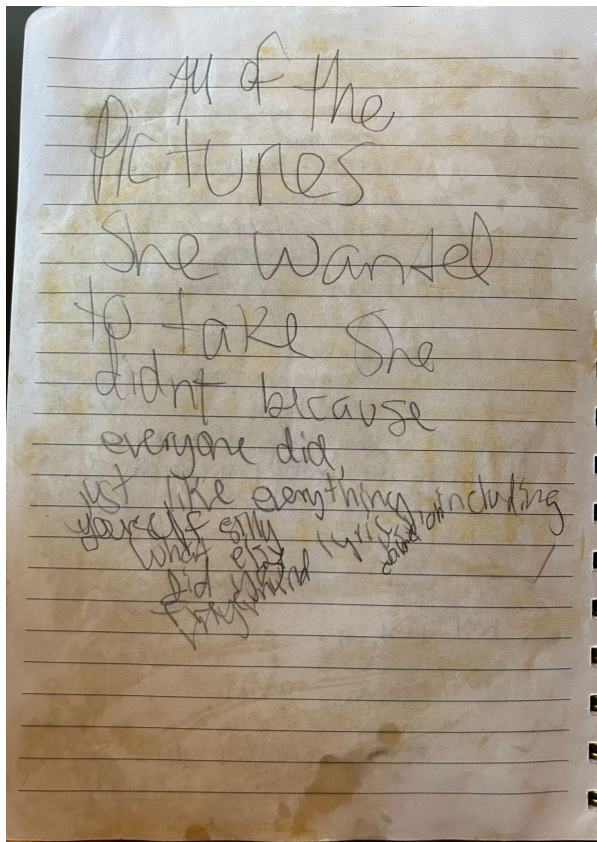 All of the
Pictures
She wanted
to take She
didnt because
everyone did,
just like everything, including
yourself silly lyric
what else
did